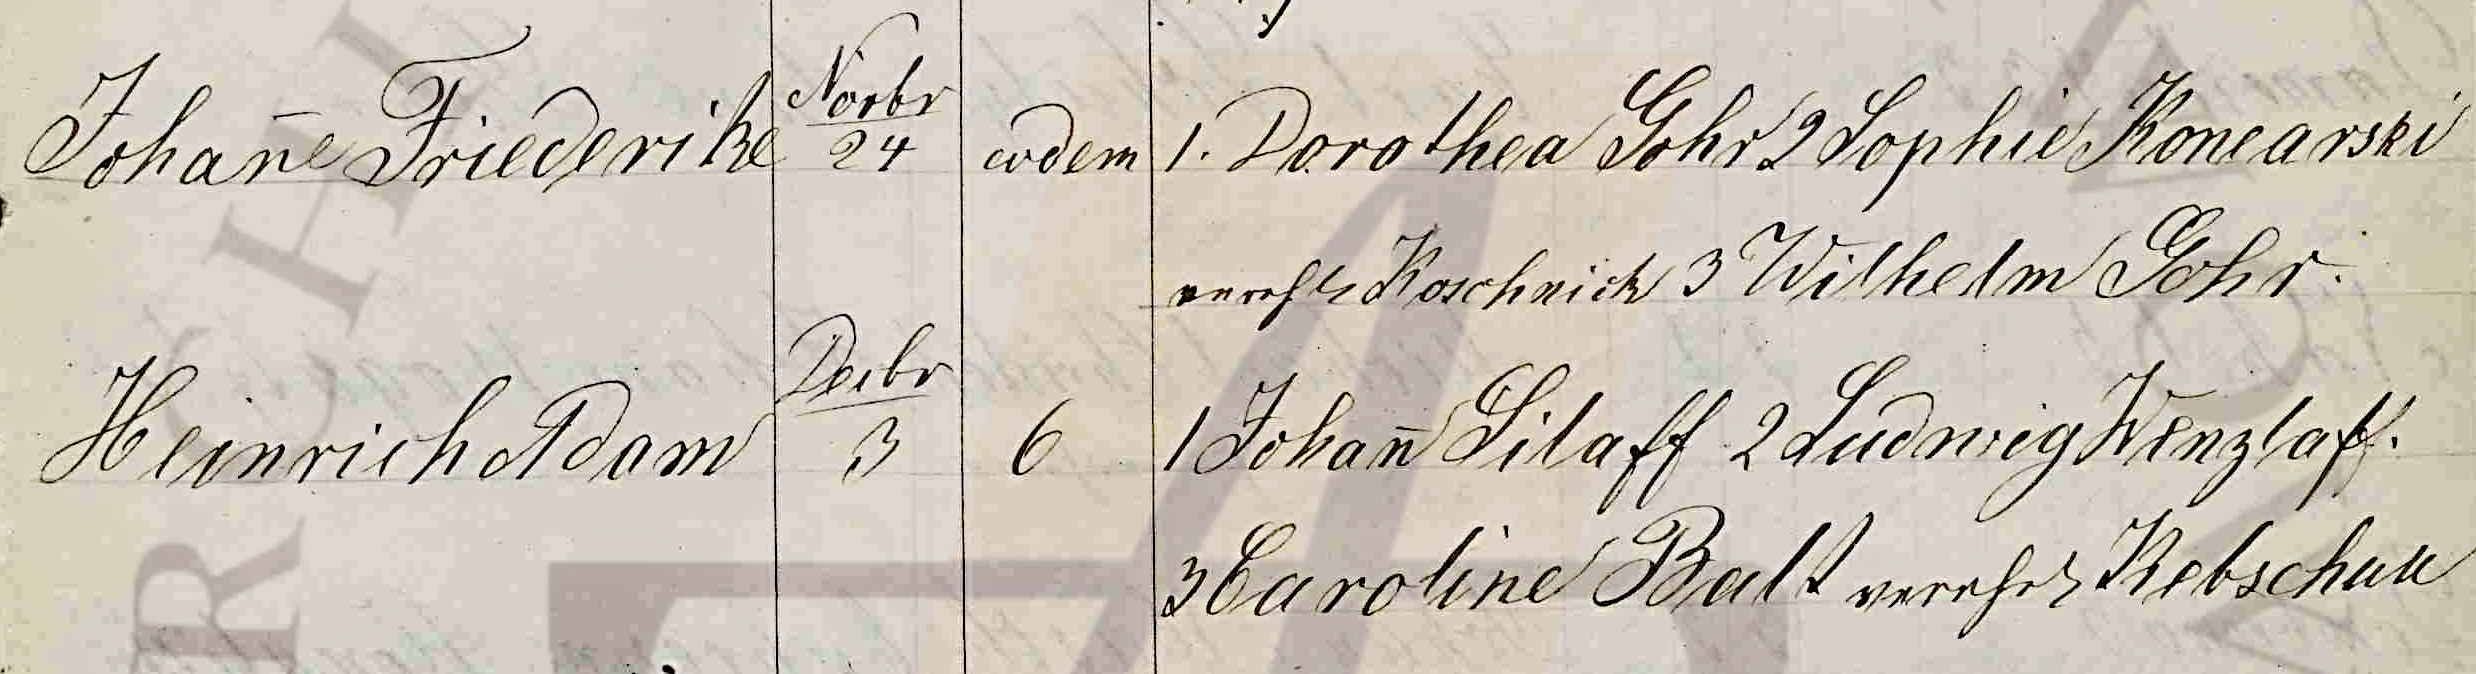 Novbr
Johan̄e Friederike 24 eodem 1. Dorothea Gohr 2 Sophie Konearski
verehl Koschnick 3 Wilhelm Gohr.
Decbr
Heinrich Adam 3 6 1 Johan̄ Silaff 2 Ludwig Wenzlaff.
3 Caroline Balt verehel Rebschun